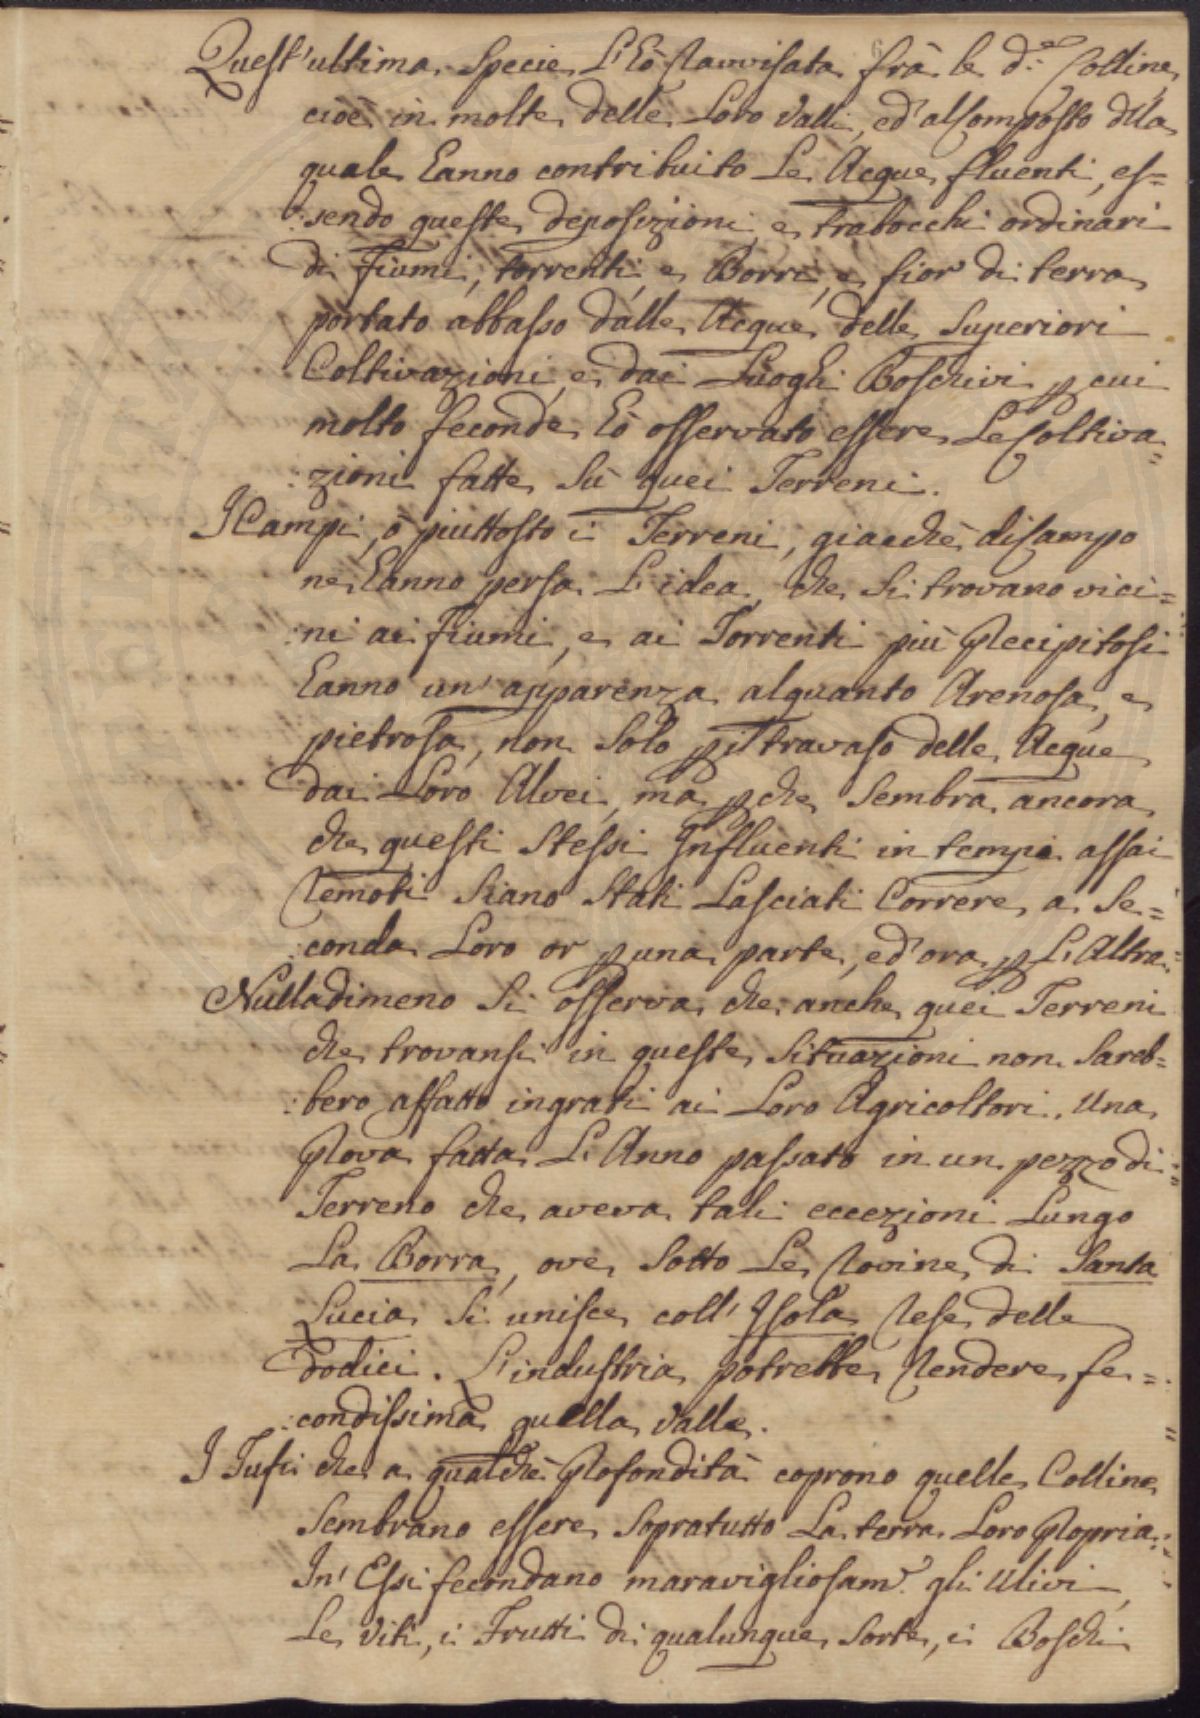 Quest'ultima Specie L'hò Ravvisata frà le d.e Colline
cioè in molte delle Loro Valli, ed al Composto della
quale hanno contribuito Le Acque fluenti, es=
:sendo queste deposizioni, e trabocchi ordinari
di Fiumi, torrenti, e Borri, e fior di terra
portato abbasso dalle Acque delle Superiori
Coltivazioni, e dai Luoghi Boschivi p cui
molto feconde hò osservato essere Le Coltiva=
:zioni fatte Sù quei Terreni.
I Campi, ò piuttosto i Terreni, giacchè di Campo
ne hanno persa L'idea, che Si trovano vici=
:ni ai Fiumi, e ai Torrenti più Precipitosi
hanno un'apparenza alquanto Arenosa, e
pietrosa, non Solo p il travaso delle Acque
dai Loro Alvei, ma pche Sembra ancora
che questi Stessi Influenti in tempi assai
remoti Siano Stati Lasciati Correre a Se=
:conda Loro or p una parte, ed ora p L'Altra.
Nulladimeno Si osserva che anche quei Terreni
che trovansi in queste Situazioni non Sareb=
:bero affatto ingrati ai Loro Agricoltori. Una
Prova fatta L'Anno passato in un pezzo di
Terreno che aveva tali eccezioni Lungo
La Borra, ove Sotto Le Rovine di Santa
Lucia Si unisce coll'Isola Rese delle
dodici. L'industria potrebbe Rendere fe=
:condissima quella Valle.
I Tufi che a qualchè Profondità coprono quelle Colline
Sembrano essere Sopratutto La terra Loro Propria.
In' Essi fecondano maravigliosam.e gli Ulivi,
Le Viti, i Frutti di qualunque Sorte, i Boschi